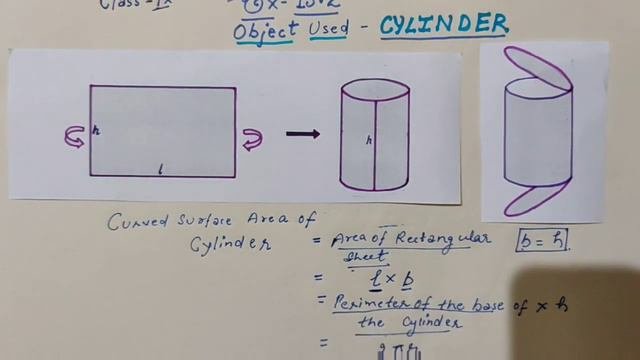 Class - IX
Ex - 13.2
Object Used - CYLINDER
h
l
h
Curved Surface Area of
Cylinder = Area of Rectangular b = h
Sheet
= l × b
= Perimeter of the base of × h
the Cylinder
= 2πr